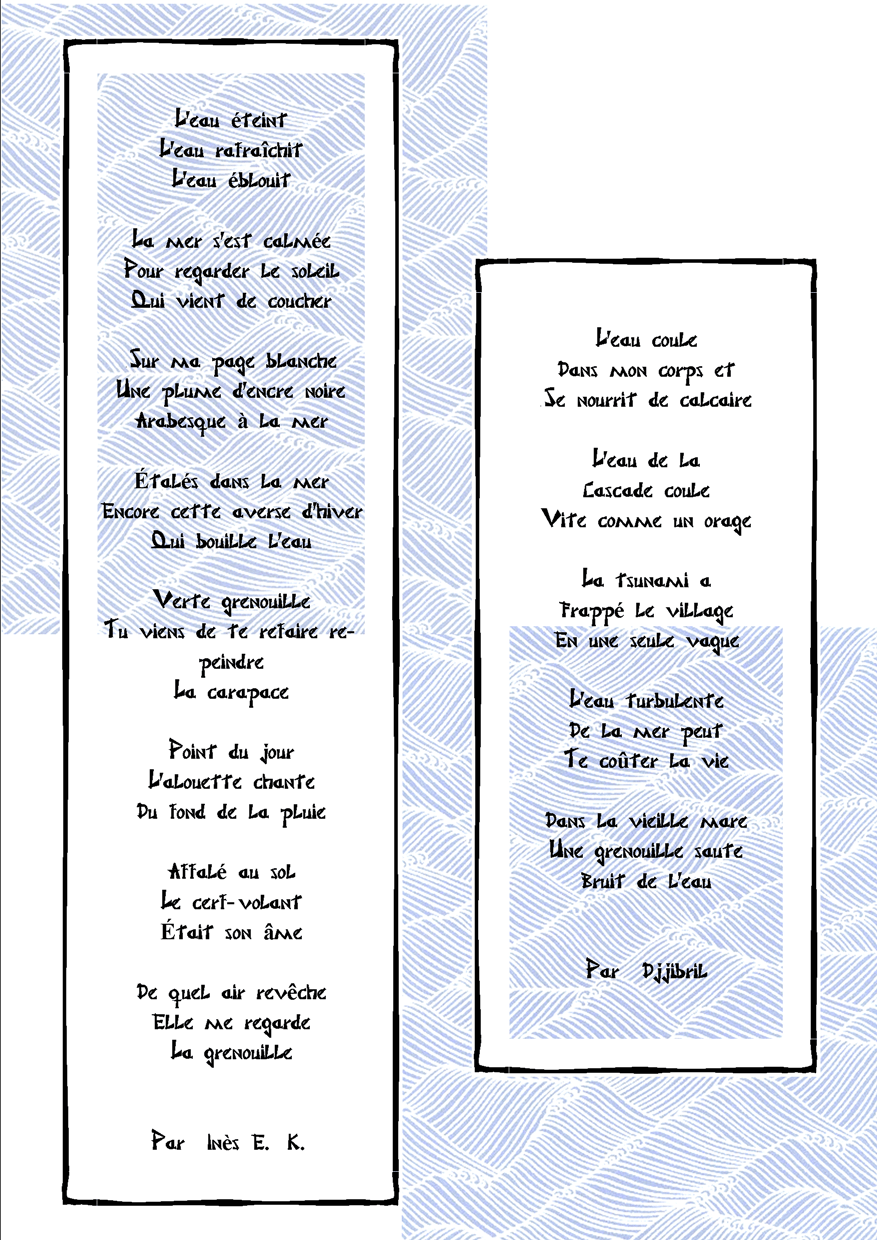 L'eau éteint
L'eau rafraîchit
L'eau éblouit
La mer s'est calmée
Pour regarder le soleil
Qui vient de coucher
Sur ma page blanche
Une plume d'encre noire
Arabesque à la mer
Étalés dans la mer
Encore cette averse d'hiver
Qui bouille l'eau
Verte grenouille
Tu viens de te refaire re-
peindre
La carapace
Point du jour
L'alouette chante
Du fond de la pluie
Affalé au sol
Le cerf-volant
Était son âme
De quel air revêche
Elle me regarde
La grenouille
Par Inès E. K.
L'eau coule
Dans mon corps et
Se nourrit de calcaire
L'eau de la
Cascade coule
Vite comme un orage
La tsunami a
Frappé le village
En une seule vague
L'eau turbulente
De la mer peut
Te coûter la vie
Dans la vieille mare
Une grenouille saute
Bruit de l'eau
Par Djjibril